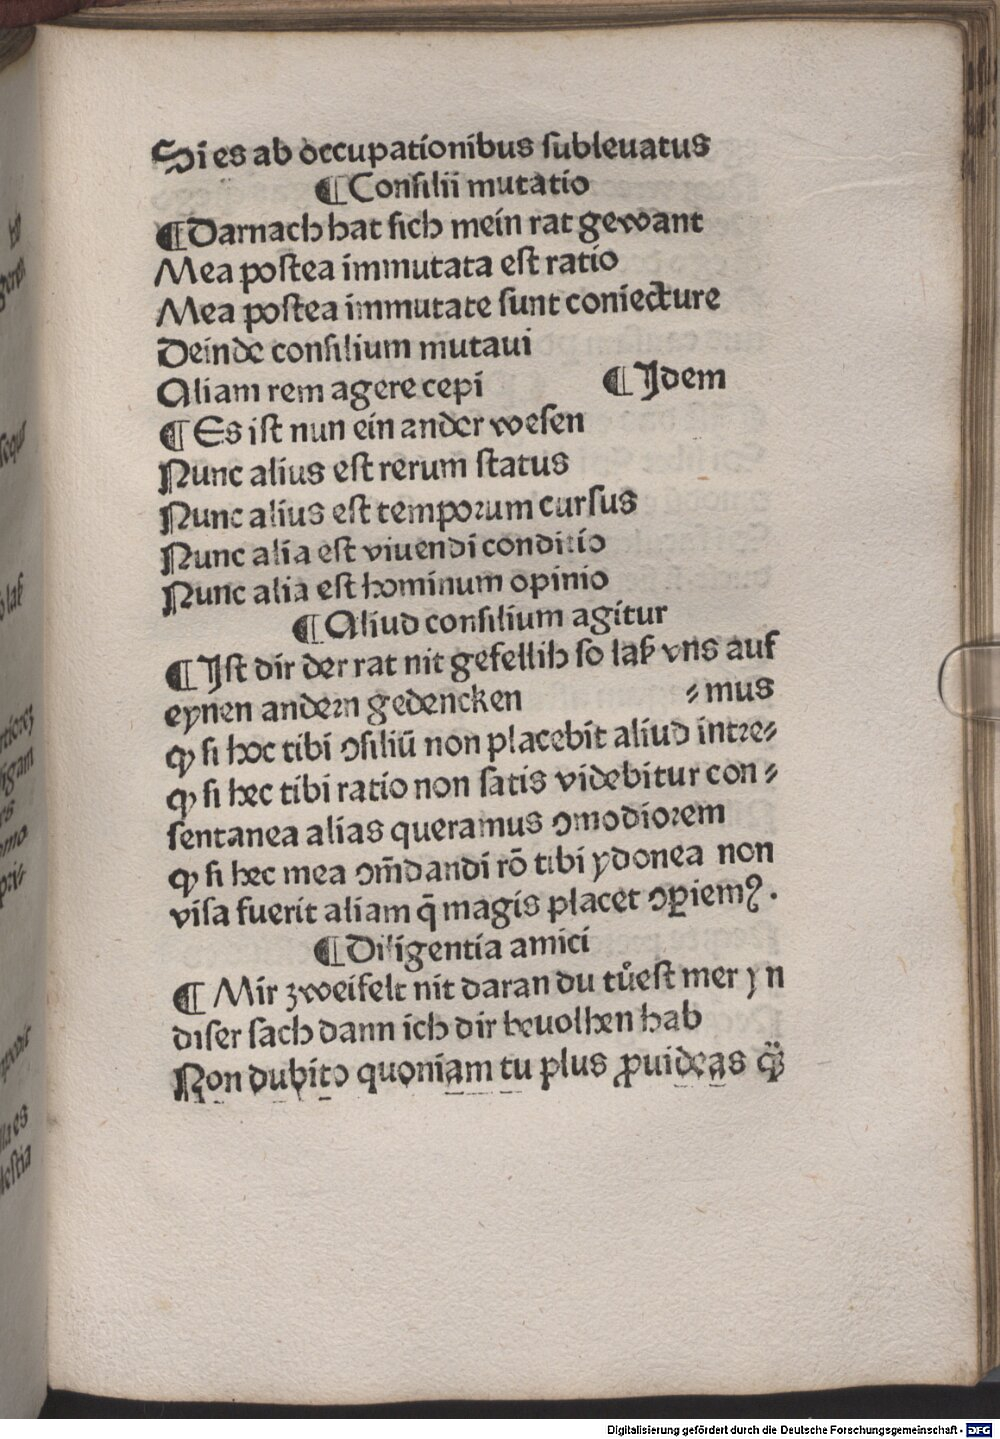 Si es ab occupationibus ſubleuatus
¶Conſilii mutatio
¶Darnach hat ſich mein rat gewant
Mea poſtea immutata eſt ratio
Mea poſtea immutate ſunt coniecture
Deinde conſilium mutaui
Aliam rem agere cepi ¶Idem
¶Es iſt nun ein ander weſen
Nunc alius eſt rerum ſtatus
Nunc alius eſt tempoꝛum curſus
Nunc alia eſt viuendi conditio
Nunc alia eſt hominum opinio
¶Aliud conſilium agitur
¶Iſt dir der rat nit gefellih ſo laß vns auf
eynen andern gedencken ⸗mus
ꝙ ſi hoc tibi ↄſiliū non placebit aliud intre⸗
ꝙ ſi hec tibi ratio non ſatis videbitur con⸗
ſentanea alias queramus ↄmodioꝛem
ꝙ ſi hec mea ↄm̄dandi rō tibi ydonea non
viſa fuerit aliam q̄ magis placet ↄꝑiemꝰ.
¶Diligentia amici
¶Mir zweifelt nit daran du tůeſt mer yn
diſer ſach dann ich dir beuolhen hab
Non dubito quoniam tu plus ꝓuideas

laß
Digitalisierung gefördert durch die Deutsche Forschungsgemeinschaft - DFG